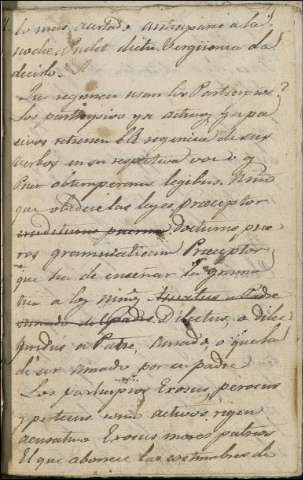 lo mas, acortado anteponerse a la
noche. Pudet dictu Verguenza da
decirlo.
Que regimen usan los Participios?
Los participios ya activos, ya pa
sivos retienen el regimen de sus
verbos en su respectiva voz: v. g.
Puer obtemperans legibus. Niño
que obedece las leyes praeceptor
docturus pue
ros grammaticam Preceptor
que ha de enseñar la grama
tica a los niños Amatus a Padre
amado del Padre Dilectus, o dili
gendus a Patre, Amado, o que ha
de ser amado por su padre
Los participios Exosus, perosus
y pertaesus como activos rigen
acusativo Exosus mores patrios
El que aborrece las costumbres de